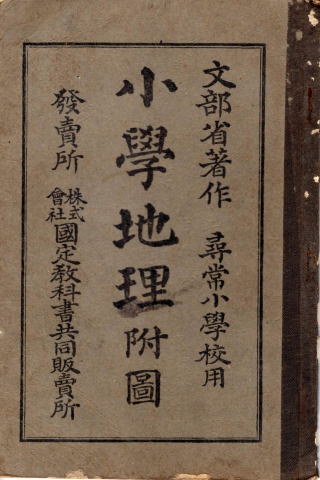 文部省著作 尋常小學校用
小學地理附圖
發賣所 株式會社國定教科書共同販賣所